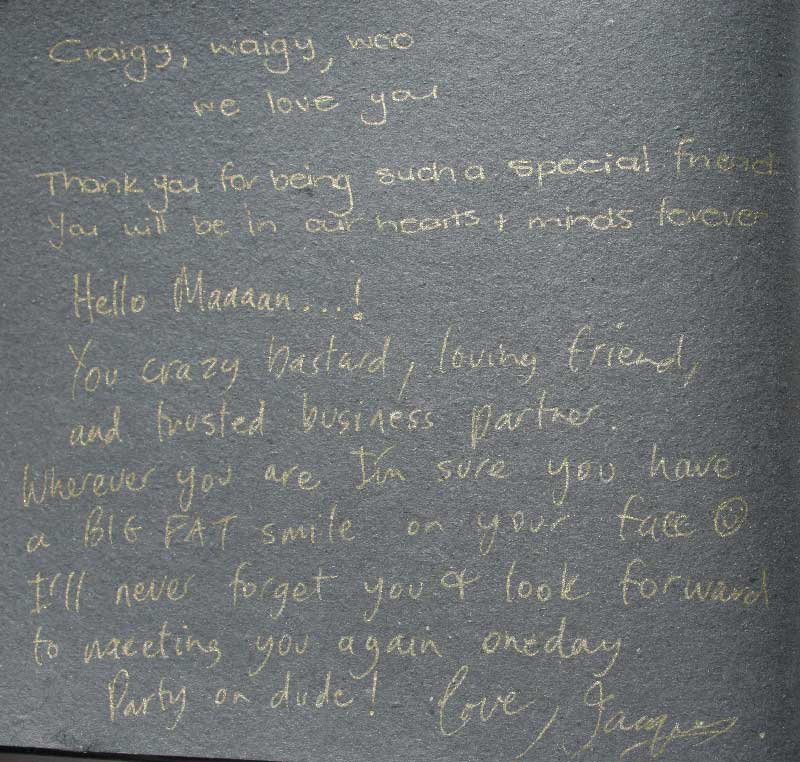 Craigy, waigy, woo
we love you
Thank you for being such a special friend
You will be in our hearts + minds forever
Hello Maaaan...!
You crazy bastard, loving friend,
and trusted business partner.
Wherever you are I'm sure you have
a BIG FAT smile on your face ☺
I'll never forget you & look forward
to meeting you again oneday.
Party on dude! Love, Jacques.